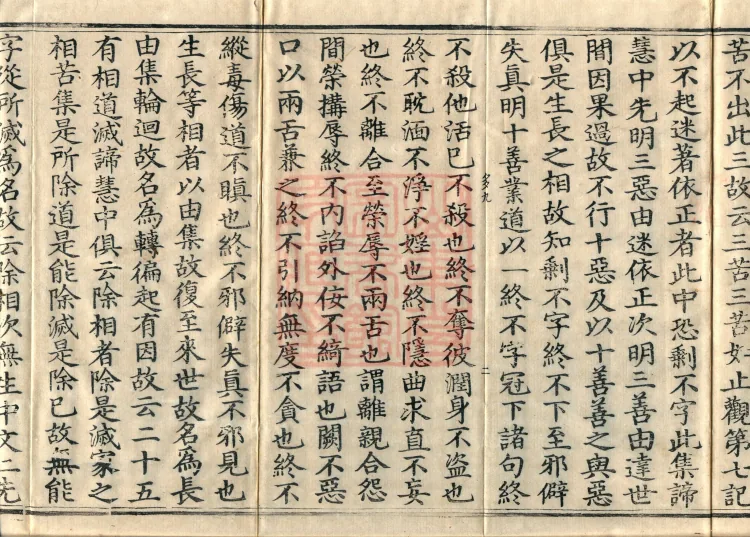 苦不出此三故云三苦三苦如止觀第七記
以不起迷著依正者此中恐剩不字此集諦
慧中先明三惡由迷依正次明三善由達世
間因果過故不行十惡及以十善善之與惡
俱是生長之相故知剩不字終不下至邪僻
失真明十善業道以一終不字冠下諸句終
不殺他活巳不殺也終不奪彼潤身不盜也
終不耽湎不淨不婬也終不隱曲求直不妄
也終不離合至榮辱不兩舌也謂離親合怨
間榮搆辱終不內諂外佞不綺語也闕不惡
口以兩舌兼之終不引納無度不貪也終不
縱毒傷道不瞋也終不邪僻失真不邪見也
生長等相者以由集故復至來世故名為長
由集輪迴故名為轉徧起有因故云二十五
有相道滅諦慧中俱云除相者除是滅家之
相苦集是所除道是能除滅是除巳故無能
字從所滅為名故云除相次無生中文二先